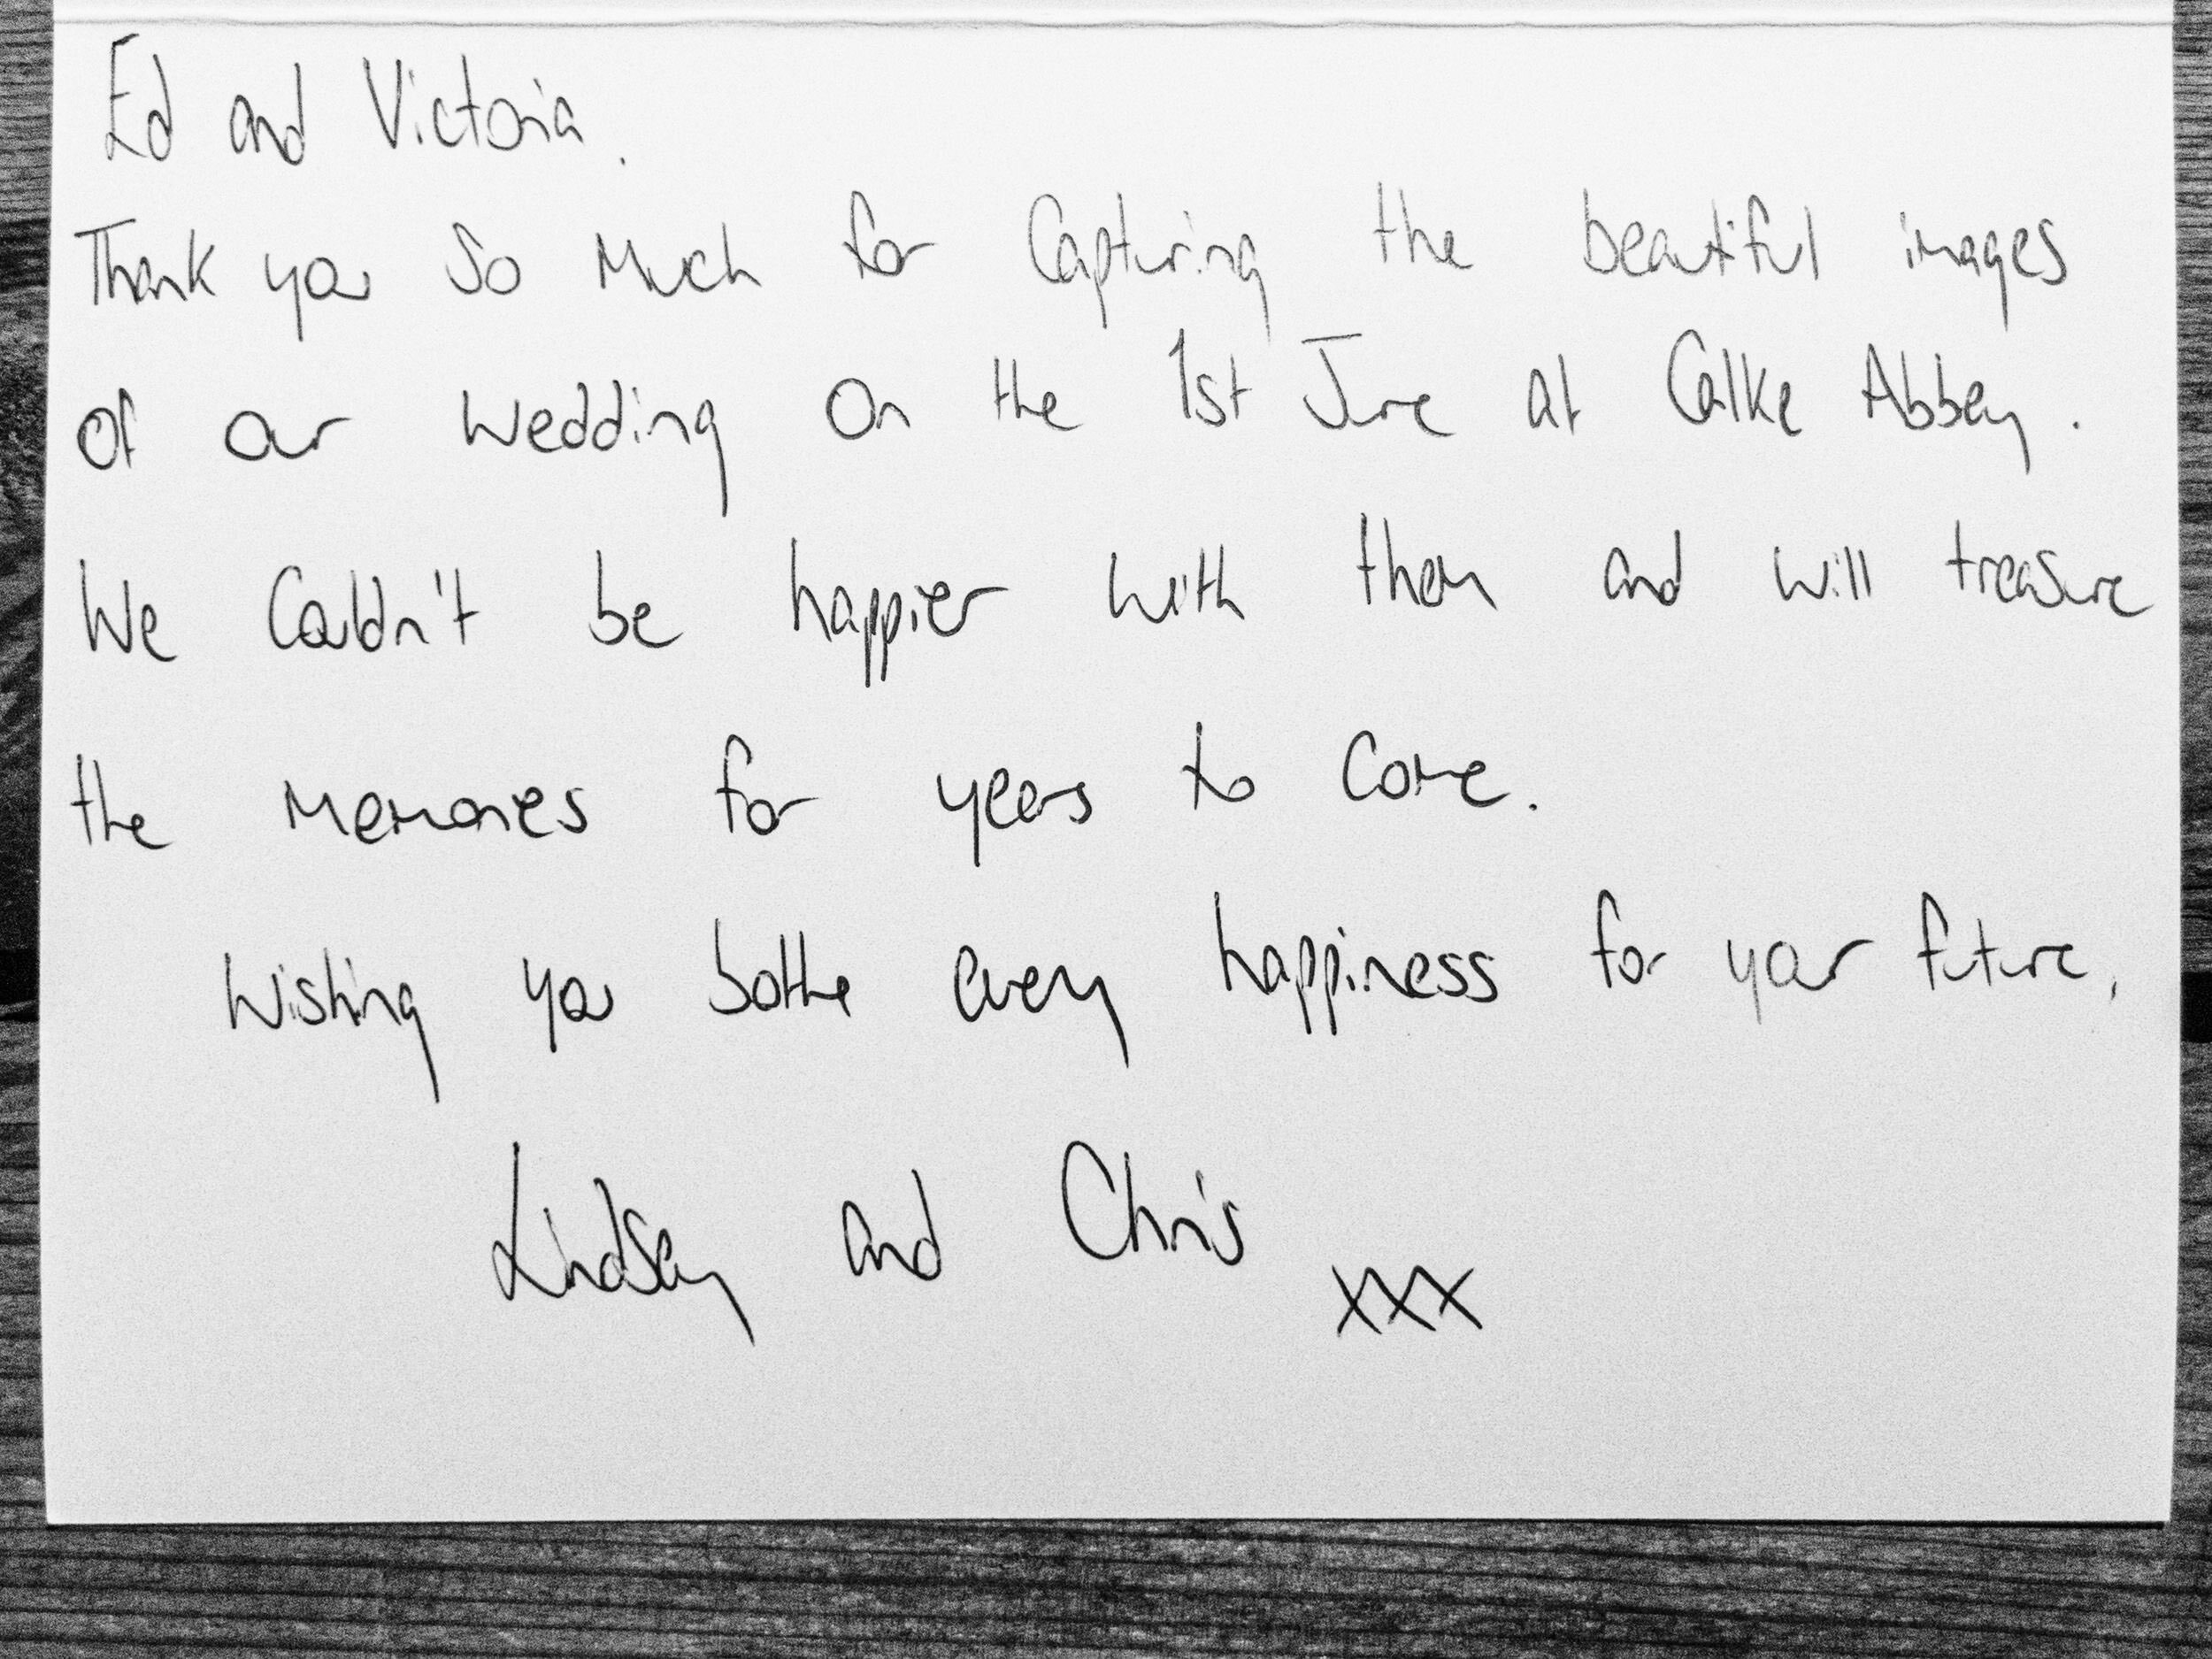 Ed and Victoria.
Thank you So Much for Capturing the beautiful images
of our Wedding On the 1st June at Calke Abbey.
We Couldn't be happier with them and will treasure
the Memories for years to Come.
Wishing you bothe every happiness for your future,
Lindsay and Chris
xxx